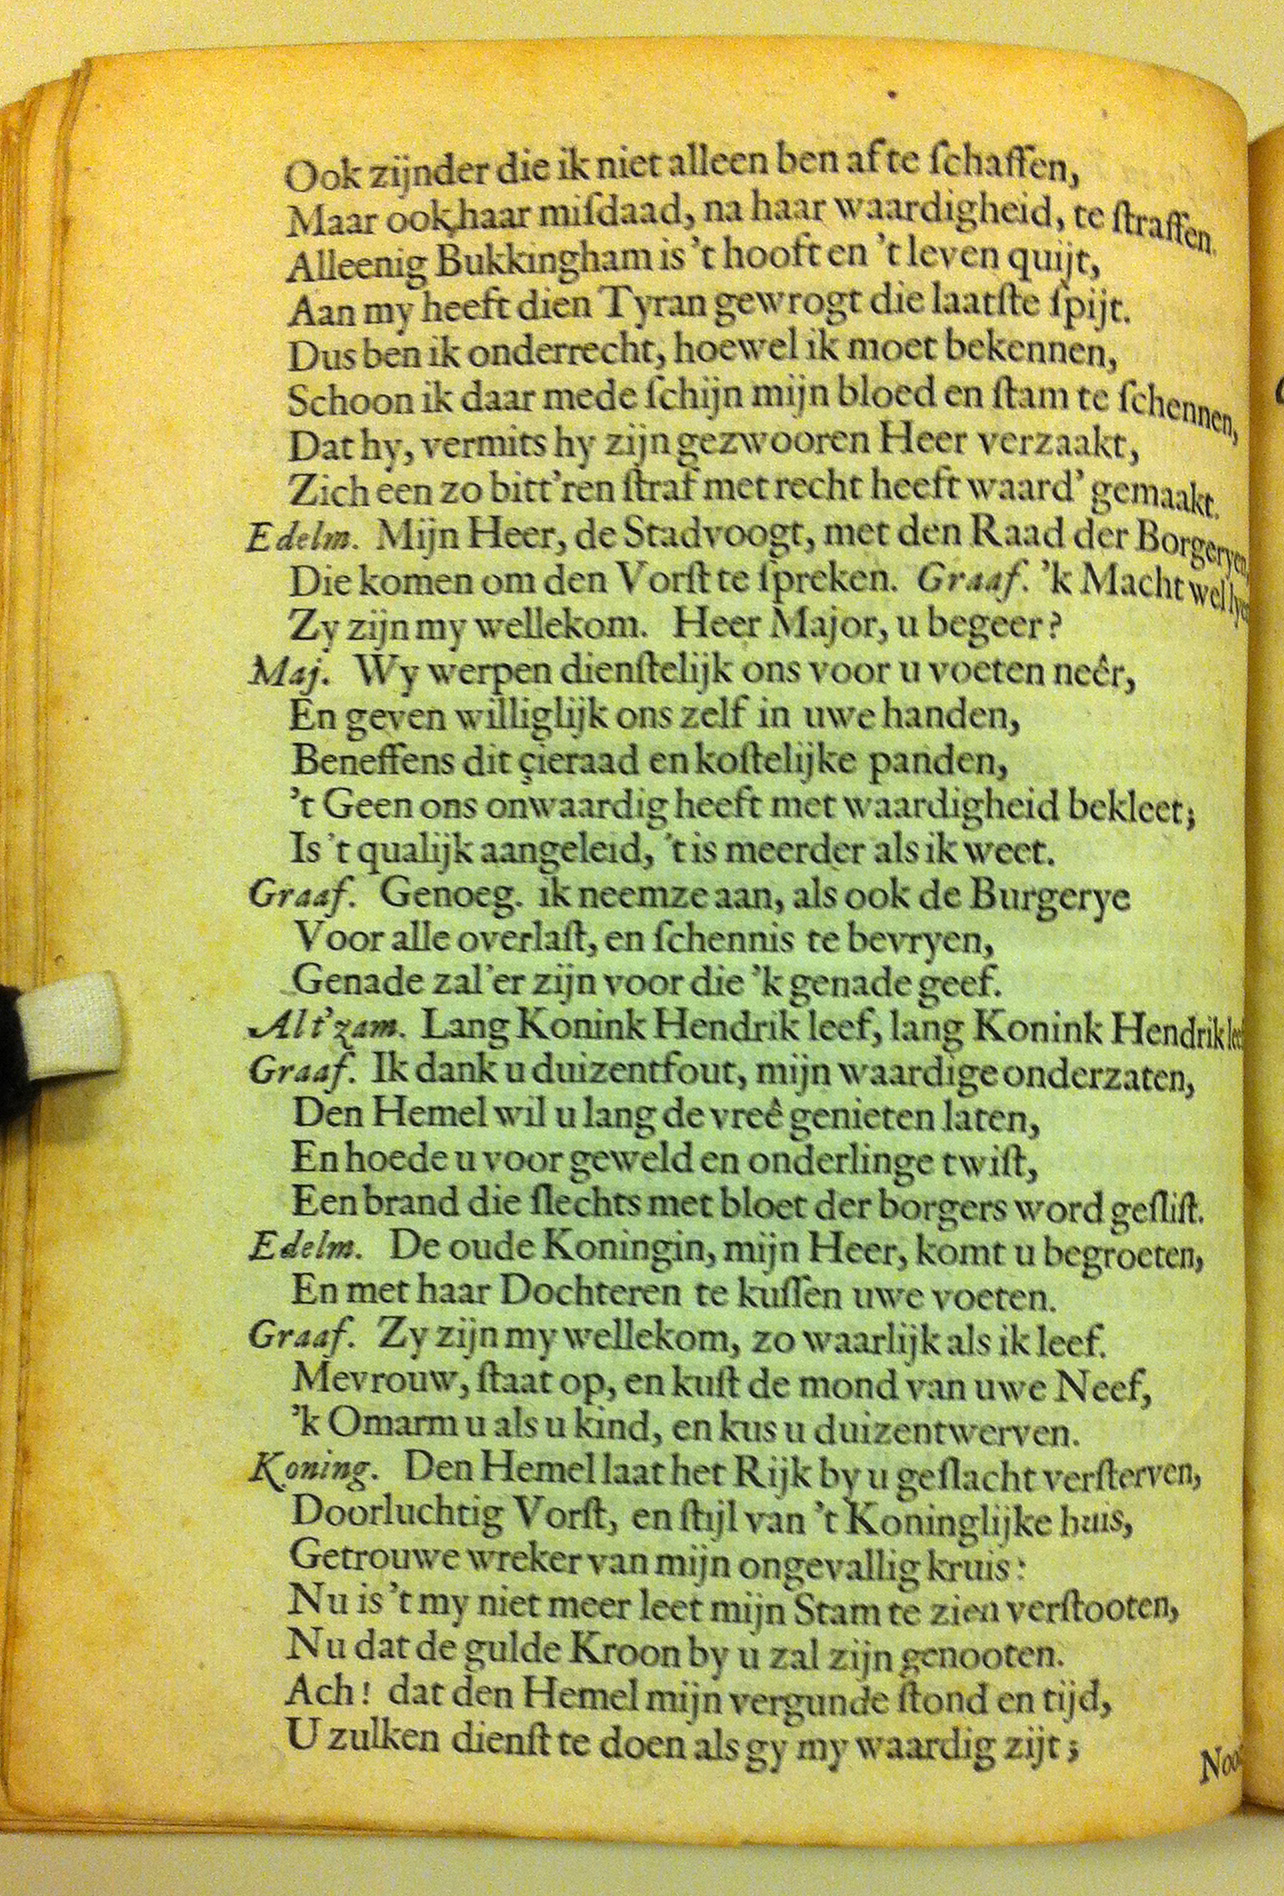 Ook zijnder die ik niet alleen ben af te ſchaffen,
Maar ook haar miſdaad, na haar waardigheid, te ſtraffen.
Alleenig Bukkingham is 't hooft en 't leven quijt,
Aan my heeft dien Tyran gewrogt die laatſte ſpijt.
Dus ben ik onderrecht, hoewel ik moet bekennen,
Schoon ik daar mede ſchijn mijn bloed en ſtam te ſchennen,
Dat hy, vermits hy zijn gezwooren Heer verzaakt,
Zich een zo bitt'ren ſtraf met recht heeft waard' gemaakt.
Edelm. Mijn Heer, de Stadvoogt, met den Raad der Borgeryen,
Die komen om den Vorſt te ſpreken. Graaf. 'k Macht wel
Zy zijn my wellekom. Heer Major, u begeer?
Maj. Wy werpen dienſtelijk ons voor u voeten neêr,
En geven williglijk ons zelf in uwe handen,
Beneffens dit çieraad en koſtelijke panden,
't Geen ons onwaardig heeft met waardigheid bekleet;
Is 't qualijk aangeleid, 't is meerder als ik weet.
Graaf. Genoeg. ik neemze aan, als ook de Burgerye
Voor alle overlaſt, en ſchennis te bevryen,
Genade zal'er zijn voor die 'k genade geef.
Alt'zam. Lang Konink Hendrik leef, lang Konink Hendrik
Graaf. Ik dank u duizentfout, mijn waardige onderzaten,
Den Hemel wil u lang de vreê genieten laten,
En hoede u voor geweld en onderlinge twiſt,
Een brand die ſlechts met bloet der borgers word geſliſt.
Edelm. De oude Koningin, mijn Heer, komt u begroeten,
En met haar Dochteren te kuſſen uwe voeten.
Graaf. Zy zijn my wellekom, zo waarlijk als ik leef.
Mevrouw, ſtaat op, en kuſt de mond van uwe Neef,
'k Omarm u als u kind, en kus u duizentwerven.
Koning. Den Hemel laat het Rijk by u geſlacht verſterven,
Doorluchtig Vorſt, en ſtijl van 't Koninglijke huis,
Getrouwe wreker van mijn ongevallig kruis:
Nu is 't my niet meer leet mijn Stam te zien verſtooten,
Nu dat de gulde Kroon by u zal zijn genooten.
Ach! dat den Hemel mijn vergunde ſtond en tijd,
U zulken dienſt te doen als gy my waardig zijt;